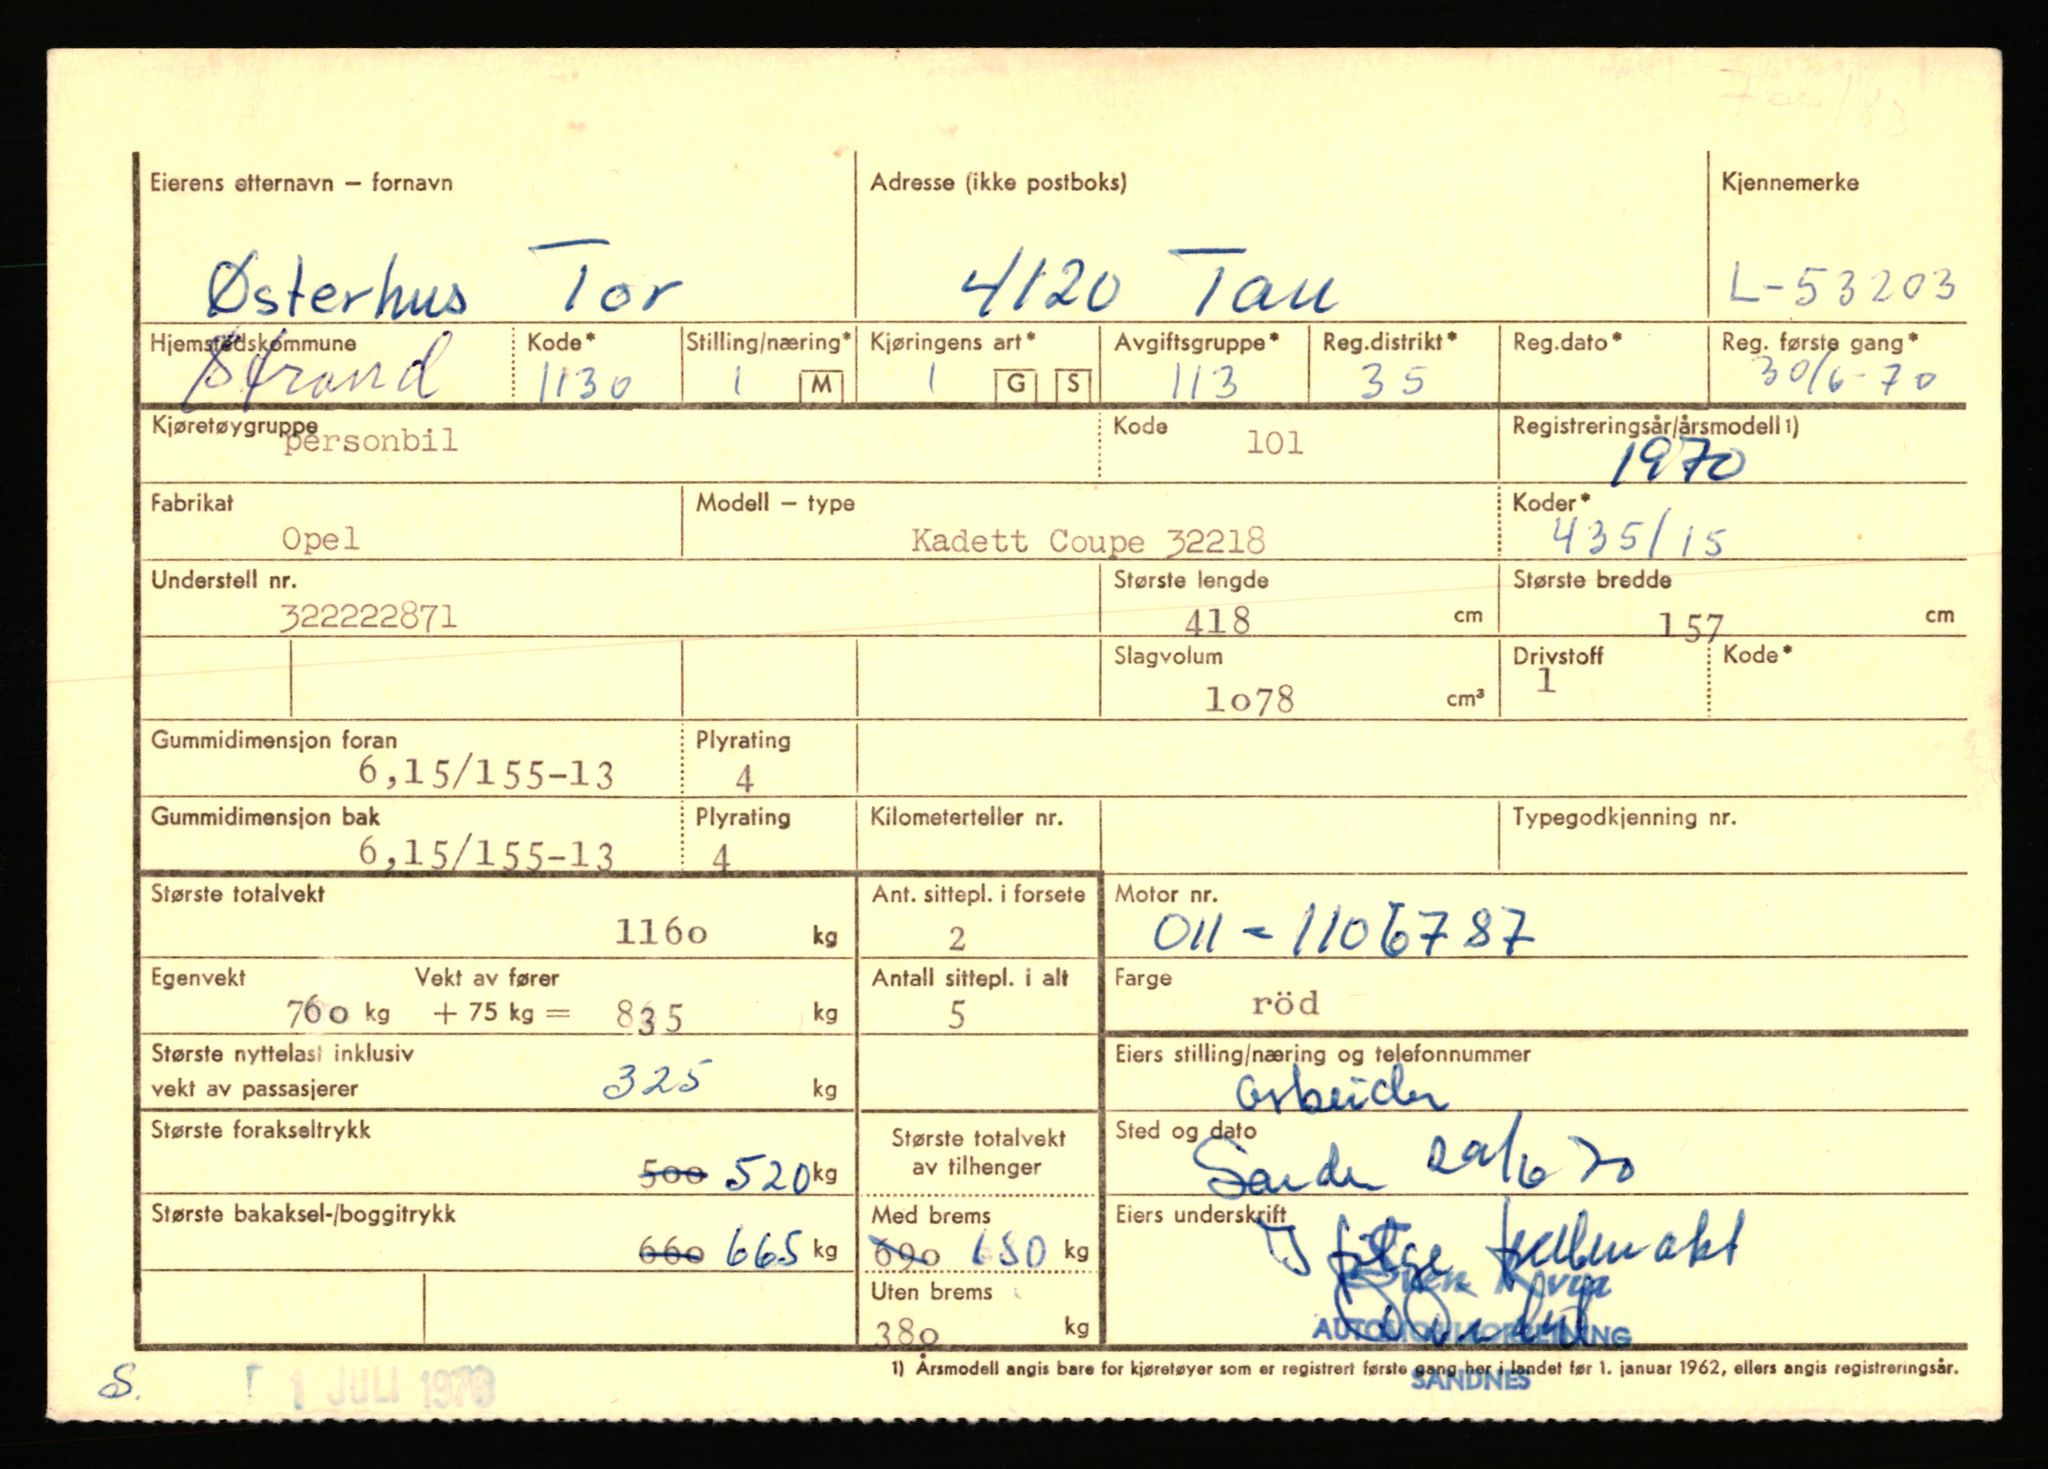 Eierens etternavn – fornavn
Adresse (ikke postboks)
Kjennemerke
Østerhus Tor
4120 Tau
L-53203
Hjemstedskommune
Kode*
Stilling/næring*
Kjøringens art*
Avgiftsgruppe*
Reg.distrikt*
Reg.dato*
Reg. første gang*
Strand
1130
1 M
1 G S
113
35
30/6-70
Kjøretøygruppe
personbil
Kode
101
Registreringsår/årsmodell 1)
1970
Fabrikat
Modell – type
Koder*
Opel
Kadett Coupe 32218
435/15
Understell nr.
Største lengde
Største bredde
322222871
418 cm
157 cm
Slagvolum
Drivstoff
Kode*
1o78 cm³
1
Gummidimensjon foran
Plyrating
6,15/155-13
4
Gummidimensjon bak
Plyrating
Kilometerteller nr.
Typegodkjenning nr.
6,15/155-13
4
Største totalvekt
Ant. sittepl. i forsete
Motor nr.
116o kg
2
011-1106787
Egenvekt
Vekt av fører
Antall sittepl. i alt
Farge
76o kg + 75 kg = 835 kg
5
röd
Største nyttelast inklusiv
vekt av passasjerer
325 kg
Eiers stilling/næring og telefonnummer
arbeider
Største forakseltrykk
500 520 kg
Største totalvekt
av tilhenger
Sted og dato
Største bakaksel-/boggitrykk
660 665 kg
Med brems
690 650 kg
Eiers underskrift
ifølge fullmakt
Uten brems
38o kg
AUTOMOBILFORRETNING
SANDNES
1) Årsmodell angis bare for kjøretøyer som er registrert første gang her i landet før 1. januar 1962, ellers angis registreringsår.
S.
1 JULI 1970